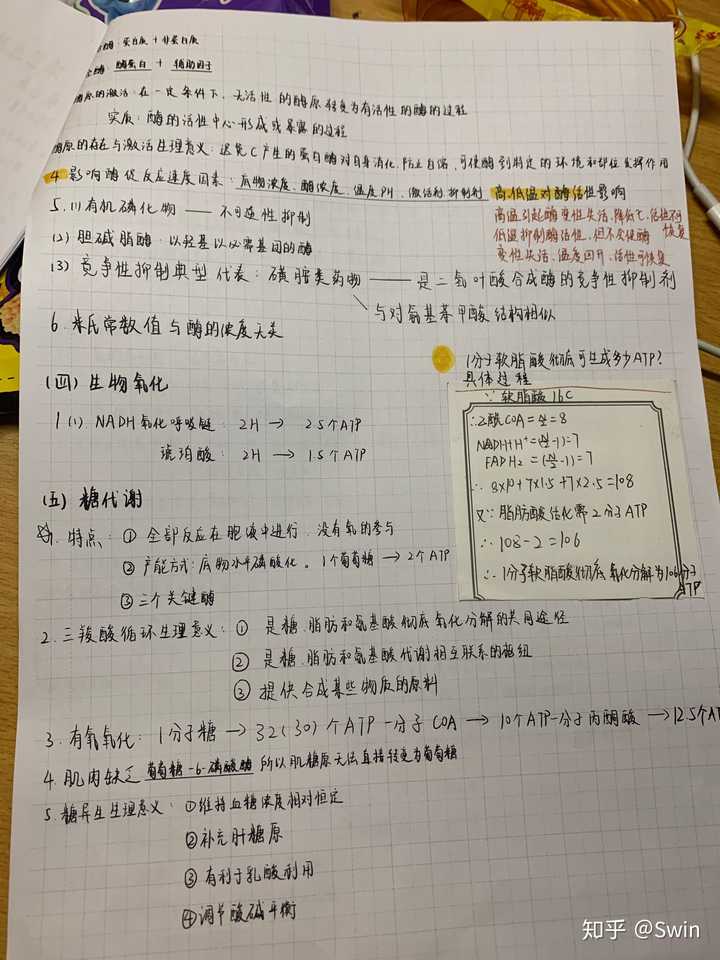 酶：蛋白质 + 非蛋白质
全酶：酶蛋白 + 辅助因子
酶原的激活：在一定条件下，无活性的酶原转变为有活性的酶的过程
实质：酶的活性中心形成或暴露的过程
酶原的存在与激活生理意义：避免C产生的蛋白酶对自身消化，防止自溶，可使酶到特定的环境和部位发挥作用
4. 影响酶促反应速度因素：底物浓度、酶浓度、温度PH、激活剂 抑制剂 高、低温对酶活性影响
高温引起酶变性失活，降低七，活性不可恢复
低温抑制酶活性，但不会使酶
变性失活，温度回升，活性可恢复
5. (1) 有机磷化物 —— 不可逆性抑制
(2) 胆碱脂酶：以羟基以必需基团的酶
(3) 竞争性抑制典型代表：磺胺类药物 —— 是二氢叶酸合成酶的竞争性抑制剂
与对氨基苯甲酸结构相似
6. 米氏常数值与酶的浓度无关
1分子软脂酸彻底可生成多少ATP？
具体过程
∵软脂酸 16C
∴乙酰COA = n/2 = 8
NADH+H⁺ = (n/2 -1) = 7
FADH₂ = (n/2 -1) = 7
∴ 8×10+7×1.5+7×2.5=108
又∵脂肪酸活化需2分子ATP
∴ 108-2=106
∴ 1分子软脂酸彻底氧化分解为106分子ATP
(四) 生物氧化
1 (1). NADH氧化呼吸链：2H → 2.5个ATP
琥珀酸：2H → 1.5个ATP
(五) 糖代谢
1. 特点：① 全部反应在胞液中进行，没有氧的参与
② 产能方式：底物水平磷酸化。1个葡萄糖 → 2个ATP
③ 三个关键酶
2. 三羧酸循环生理意义：① 是糖、脂肪和氨基酸彻底氧化分解的共用途径
② 是糖、脂肪和氨基酸代谢相互联系的枢纽
③ 提供合成某些物质的原料
3. 有氧氧化：1分子糖 → 32(30)个ATP 一分子COA → 10个ATP 一分子丙酮酸 → 12.5个AT
4. 肌肉缺乏 葡萄糖-6-磷酸酶 所以肌糖原无法直接转变为葡萄糖
5. 糖异生生理意义：①维持血糖浓度相对恒定
②补充肝糖原
③有利于乳酸利用
④调节酸碱平衡
知乎 @Swin